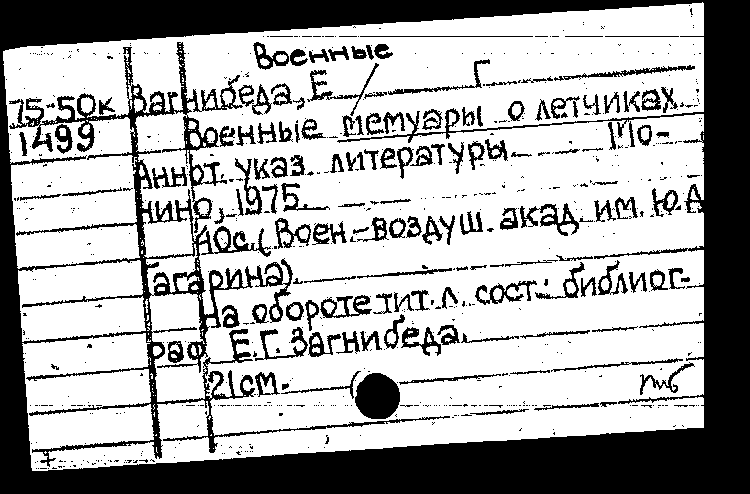 Военные
75-50к Загнибеда, Е Г
1499 Военные мемуары о летчиках.
Аннот. указ. литературы. Мо-
нино, 1975.
40с. (Воен.-воздуш. акад. им. Ю.А
Гагарина).
На обороте тит. л. сост.: библиог-
раф Е.Г. Загнибеда.
21см.